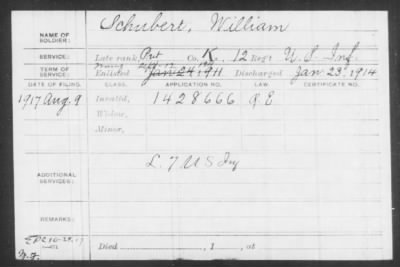 Schubert, William
NAME OF SOLDIER:
SERVICE: Late rank, Pvt Co. K, 12 Reg't U.S. Inf.
TERM OF SERVICE: Enlisted Jan 24 1911, Discharged Jan 23, 1914
DATE OF FILING. CLASS. APPLICATION NO. LAW. CERTIFICATE NO.
1917 Aug. 9 Invalid, 1428666 G.E
Widow,
Minor,
L. 7 U S Inf
ADDITIONAL SERVICES:
REMARKS:
Died , 1 , at